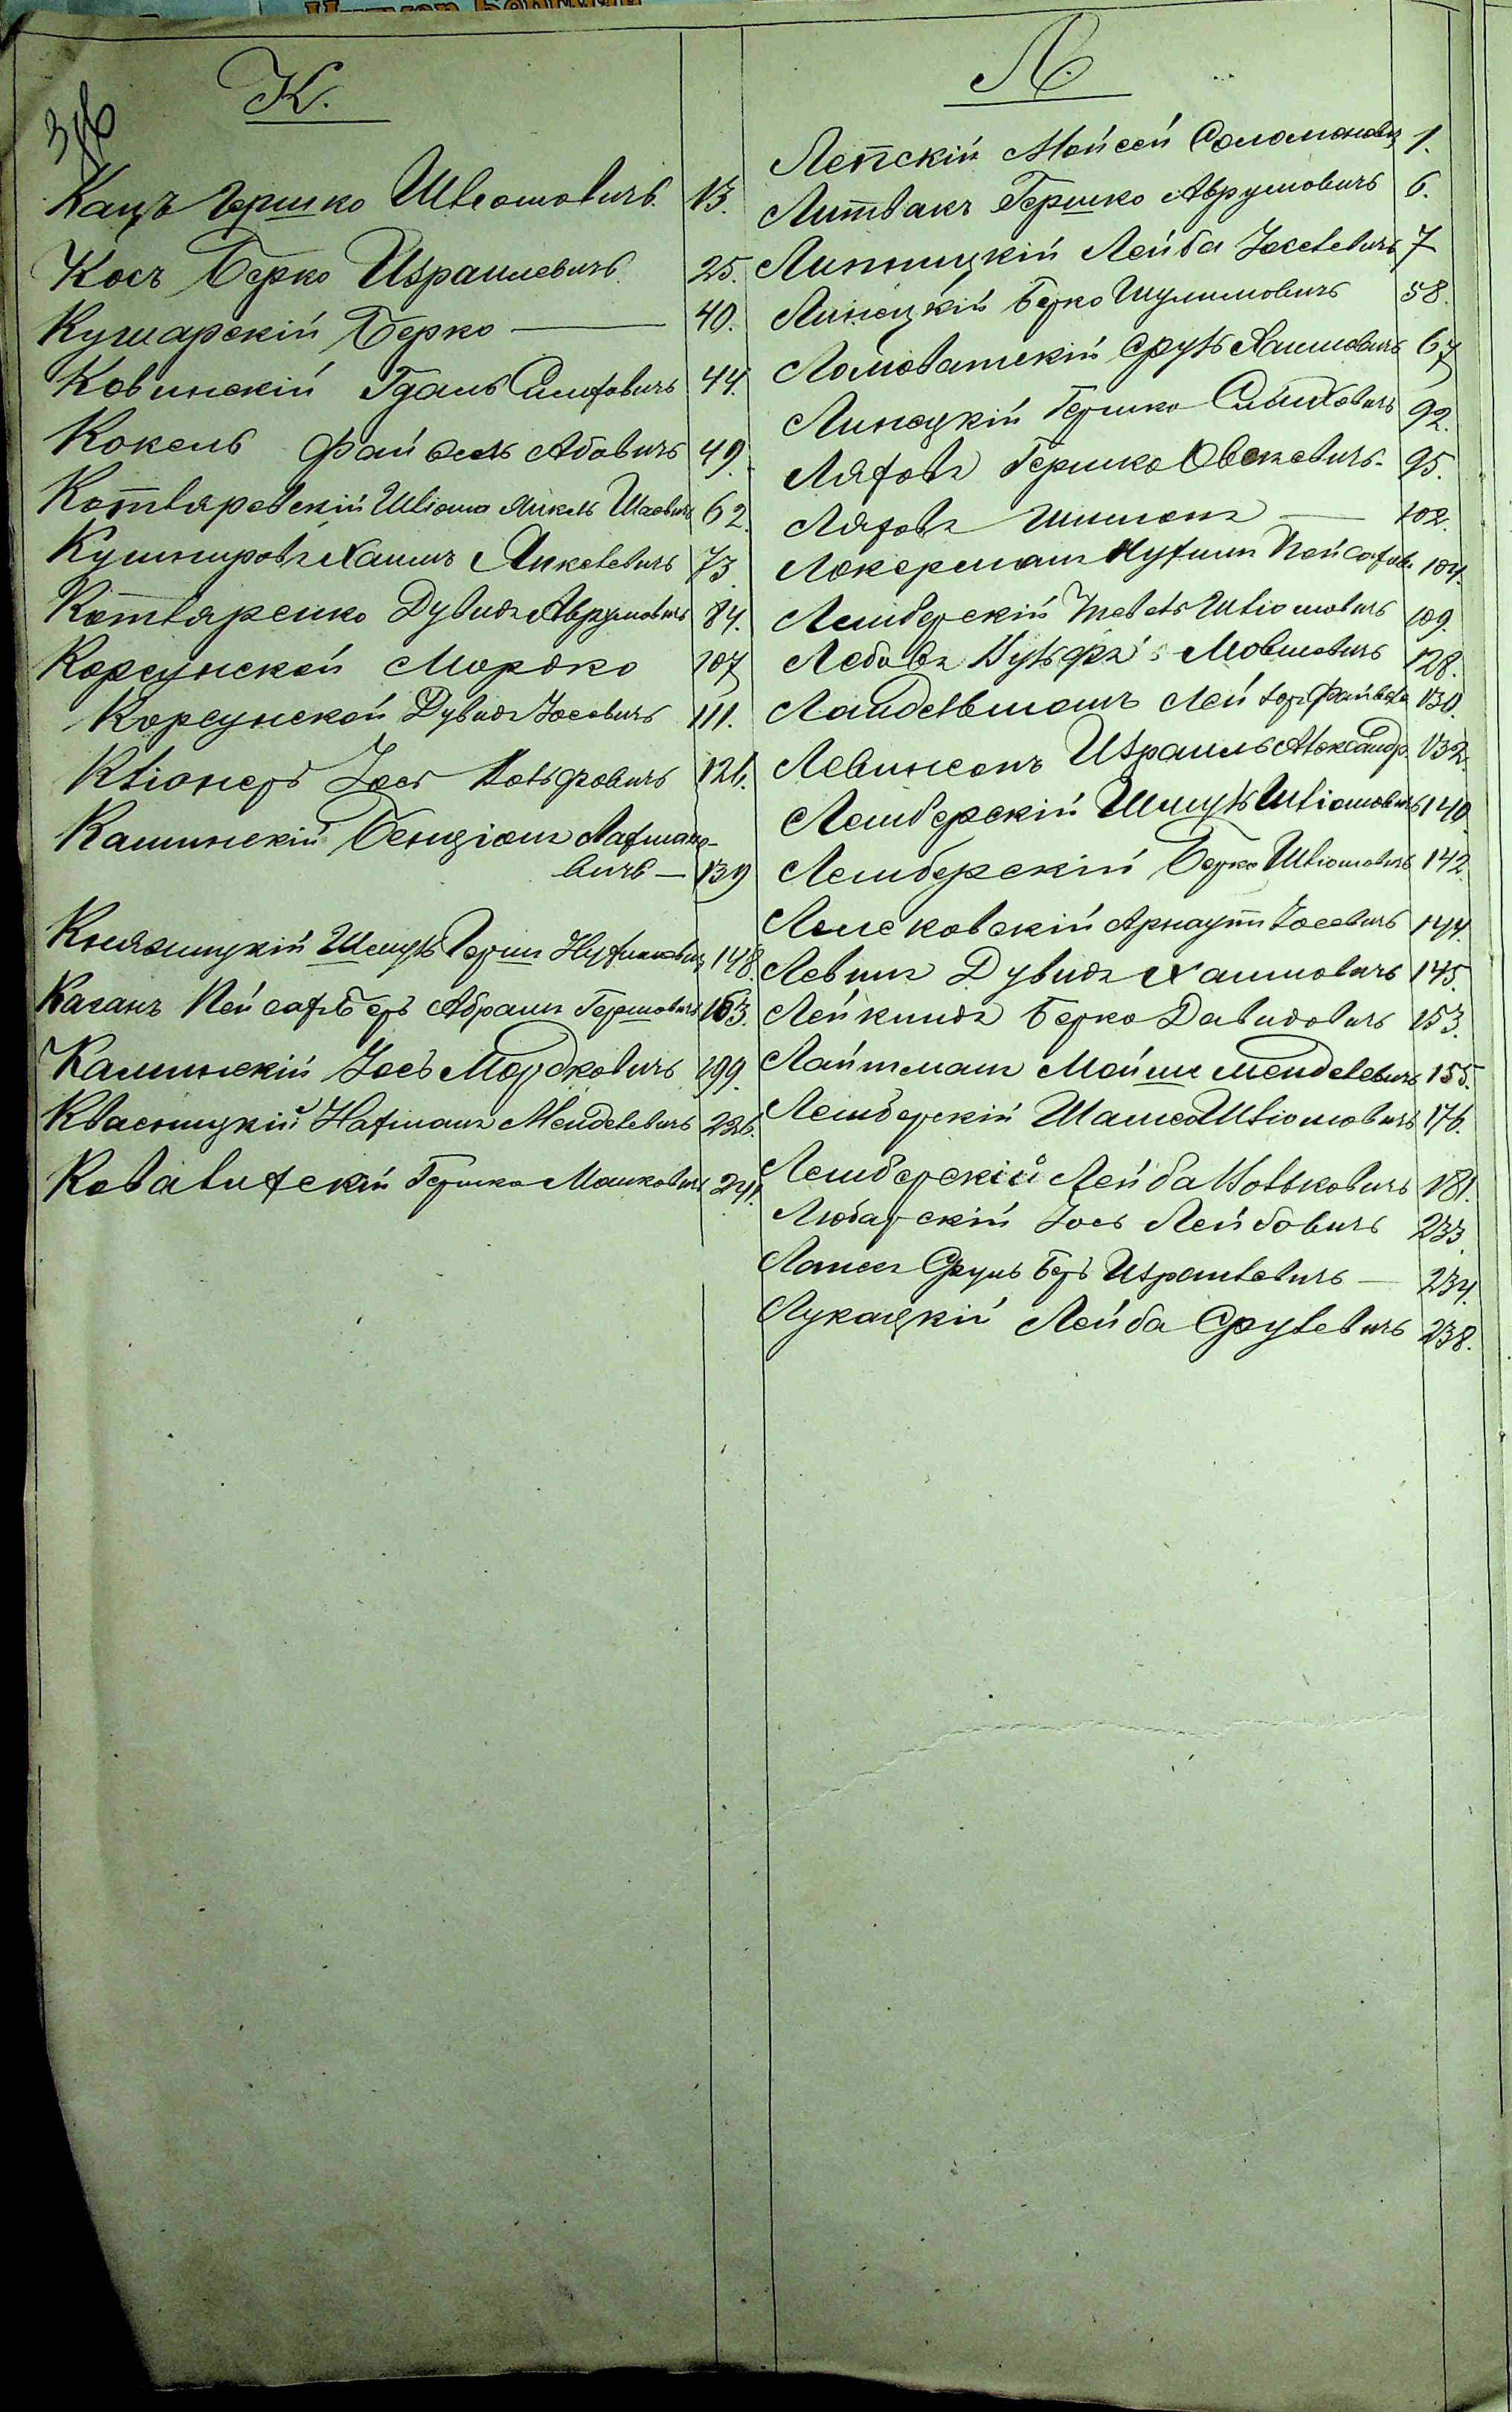 К.
Кацъ Гершко Шліомовичъ 13.
Косъ Берко Израилевичъ 25.
Кушнарскій Берко — 40.
Ковинскій Гдаль Симховичъ 44.
Кокель Файвель Абовичъ 49.
Котляревскій Шліома Янкель Шаевичъ 62.
Кушнировъ Хаимъ Янкелевичъ 73.
Котляренко Дувидъ Аврумовичъ 84.
Корсунской Мордко 107
Корсунской Дувидъ Іосевичъ 111.
Кліонеръ Іось Вольфовичъ 126.
Каминскій Бенціонъ Нахмано-
вичъ — 139
Княжицкій Шмуль Герш Нухимовичъ 148.
Каганъ Пейсахъ Беръ Абрамъ Гершовичъ 163.
Каминскій Іось Мордковичъ 199.
Квасницкій Нахманъ Менделевичъ 226.
Ковалихскій Гершко Мошковичъ 241.
Л.
Лепскій Мойсей Соломоновичъ 1.
Литвакъ Гершко Аврумовичъ 6.
Липницкій Лейба Іоселевичъ 7
Линецкій Берко Шулимовичъ 58.
Ломоватскій Сруль Хаимовичъ 67
Линецкій Гершко Симховичъ 92.
Ляховъ Гершко Овсеевичъ 95.
Ляховъ Шимонъ — 102.
Локерманъ Нухимъ Пейсахов. 104.
Лембергскій Шліомовичъ 109.
Лебовъ Вульфъ Мовшовичъ 128.
Ландсманъ Лейзоръ Файвел 130.
Левинсонъ Израиль Александр. 132.
Лембергскій Шмуль Шліомовичъ 140
Лемберскій Берко Шліомовичъ 142.
Лысковскій Іосевичъ 144.
Левинъ Дувидъ Хаимовичъ 145.
Лейкиндъ Берко Давидовичъ 153.
Лайтманъ Мойше Менделевичъ 155.
Лемберскій Шліомовичъ 176.
Лемберскій Лейба Вольковичъ 181.
Любарскій Іось Лейбовичъ 233.
Сруль Беръ Израилевичъ — 234.
Лукацкій Лейба Срулевичъ 238.